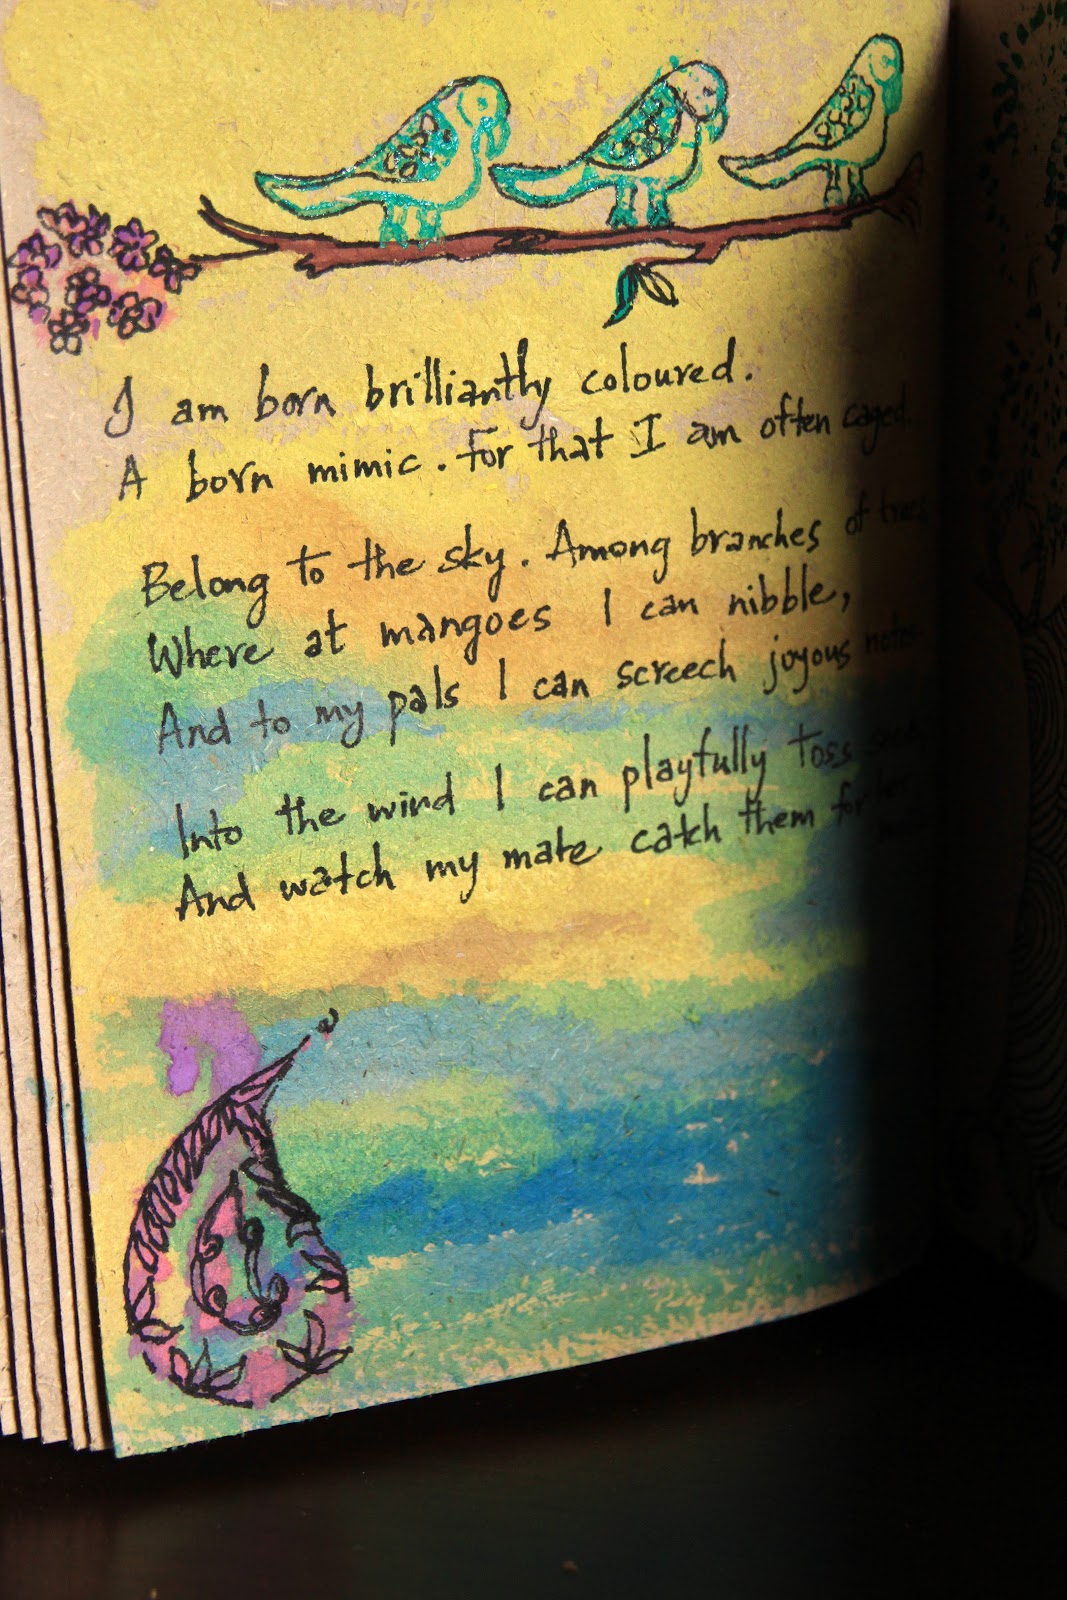 I am born brilliantly coloured.
A born mimic. For that I am often caged
Belong to the sky. Among branches of trees
Where at mangoes I can nibble,
And to my pals I can screech joyous notes
Into the wind I can playfully toss
And watch my mate catch them for